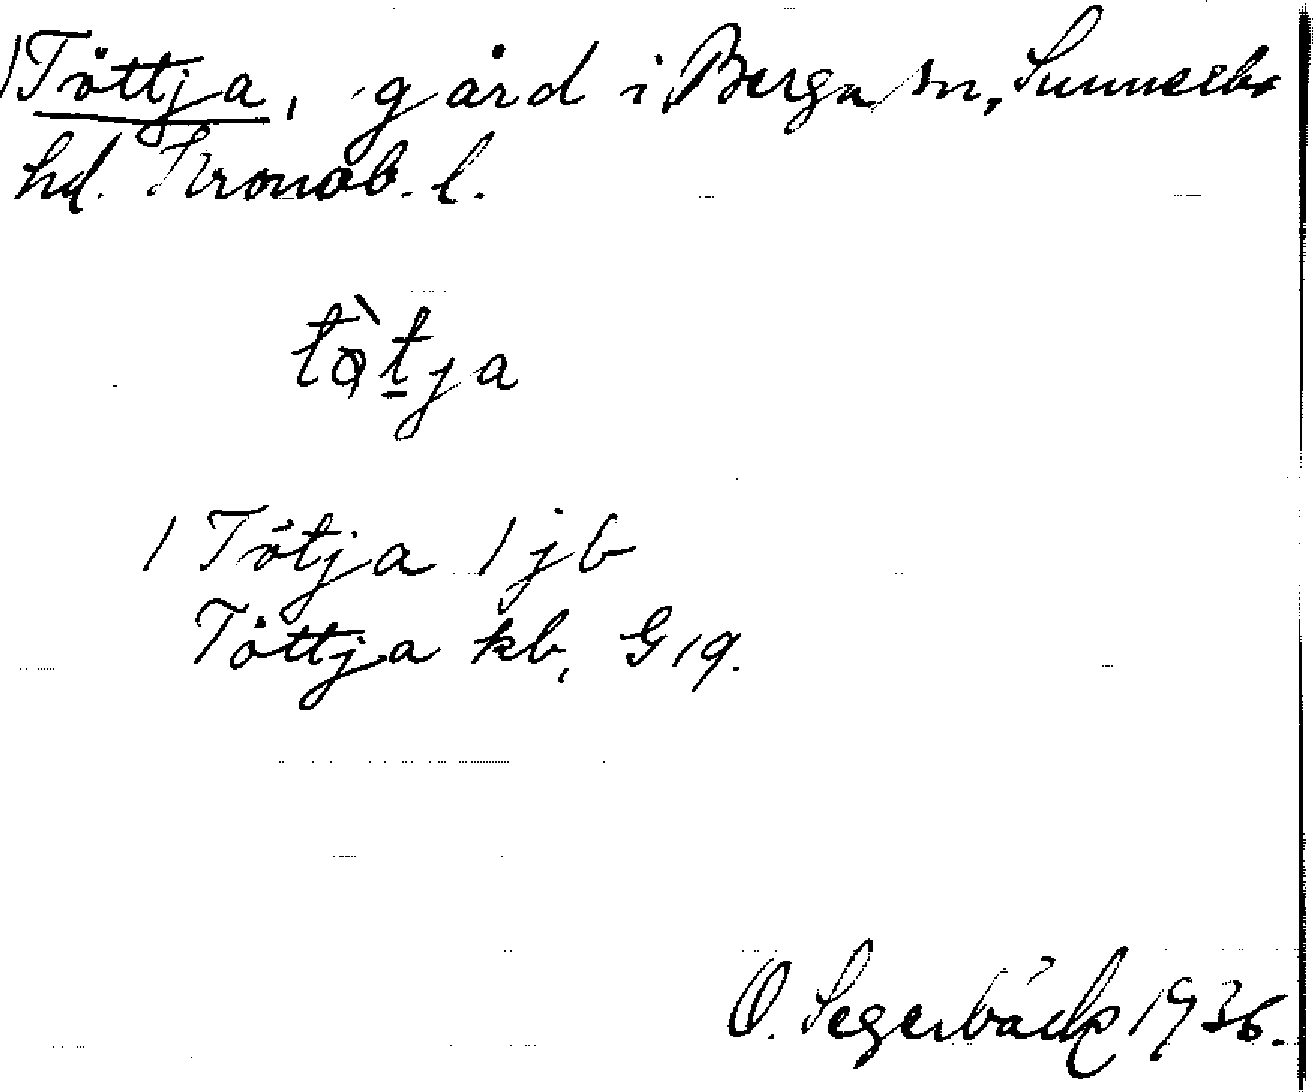 Töttja, gård i Berga sn, Sunnerbo
hd. Kronob. l.
tǫ̀t̲ja
Tötja / jb
Töttja kb, G 19.
O. Segerbäck 1936.